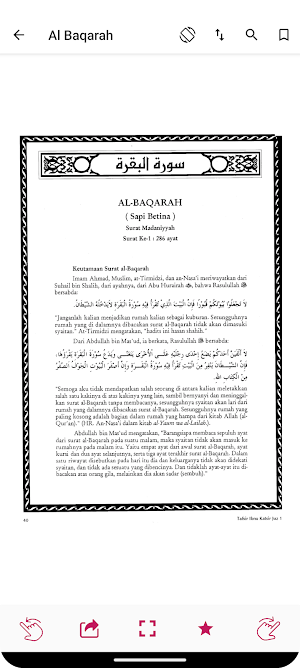 Al Baqarah
سورة البقرة
AL-BAQARAH
( Sapi Betina )
Surat Madaniyyah
Surat Ke-1 : 286 ayat
Keutamaan Surat al-Baqarah
Imam Ahmad, Muslim, at-Tirmidzi, dan an-Nasa'i meriwayatkan dari
Suhail bin Shalih, dari ayahnya, dari Abu Hurairah, bahwa Rasulullah ﷺ
bersabda:
لاَ تَجْعَلُوا بُيُوتَكُمْ قُبُورًا فَإِنَّ الْبَيْتَ الَّذِي تُقْرَأُ فِيهِ سُورَةُ الْبَقَرَةِ لاَيَدْخُلُهُ الشَّيْطَانُ
"Janganlah kalian menjadikan rumah kalian sebagai kuburan. Sesungguhnya
rumah yang di dalamnya dibacakan surat al-Baqarah tidak akan dimasuki
syaitan." At-Tirmidzi mengatakan, "hadits ini hasan shahih."
Dari Abdullah bin Mas'ud, ia berkata, Rasulullah ﷺ bersabda:
"Semoga aku tidak mendapatkan salah seorang di antara kalian meletakkan
salah satu kakinya di atas kakinya yang lain, sambil bernyanyi dan meninggal-
kan surat al-Baqarah tanpa membacanya, sesungguhnya syaitan akan lari dari
rumah yang dalamnya dibacakan surat al-Baqarah. Sesungguhnya rumah yang
paling kosong adalah bagian dalam rumah yang hampa dari kitab Allah (al-
Qur'an)." (HR. An-Nasa'i dalam kitab al-Yaum wa al-Lailah).
Abdullah bin Mas'ud mengatakan, "Barangsiapa membaca sepuluh ayat
dari surat al-Baqarah pada suatu malam, maka syaitan tidak akan masuk ke
rumahnya pada malam itu. Yaitu empat ayat dari awal surat al-Baqarah, ayat
kursi dan dua ayat selanjutnya, serta tiga ayat terakhir surat al-Baqarah. Dalam
satu riwayat disebutkan pada hari itu dia dan keluarganya tidak akan didekati
syaitan, dan tidak ada sesuatu yang dibencinya. Dan tidaklah ayat-ayat itu di-
bacakan atas orang gila, melainkan dia akan sadar (sembuh)."
Tafsir Ibnu Katsir Juz 1